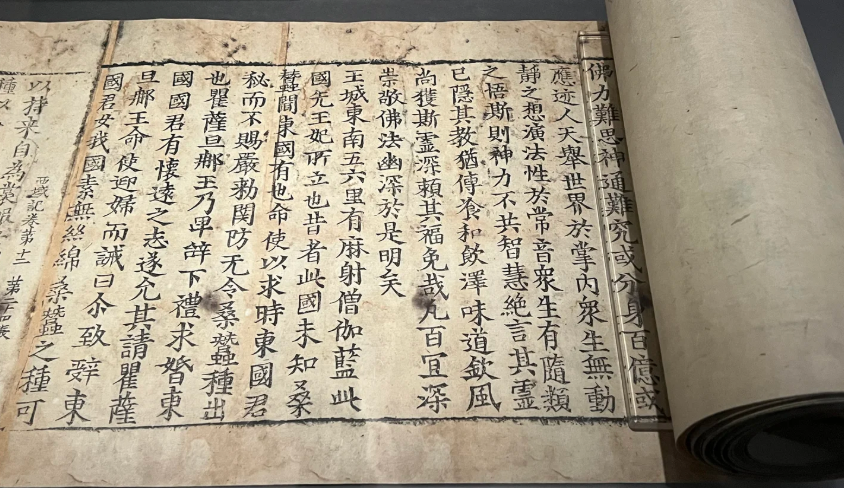 佛力難思神通難究或分身百億或
應迹人天舉世界於掌内衆生無動
靜之想演法性於常音衆生有隨類
之悟斯則神力不共智慧絶言其靈
已隱其教猶傳飡和飲澤味道欽風
尚獲斯靈深賴其福免哉凡百宜深
崇敬佛法幽深於是明矣
王城東南五六里有麻射僧伽藍此
國先王妃所立也昔者此國未知桑
蠶聞東國有也命使以求時東國君
秘而不賜嚴勑関防无令桑蠶種出
也瞿薩旦那王乃卑辝下禮求婚東
國國君有懷遠之志遂允其請瞿薩
旦那王命使迎婦而誡曰尒致辝東
國君女我國素無絲綿桑蠶之種可
西域記卷第十二 第二十 張
以持来自為裳服
種以